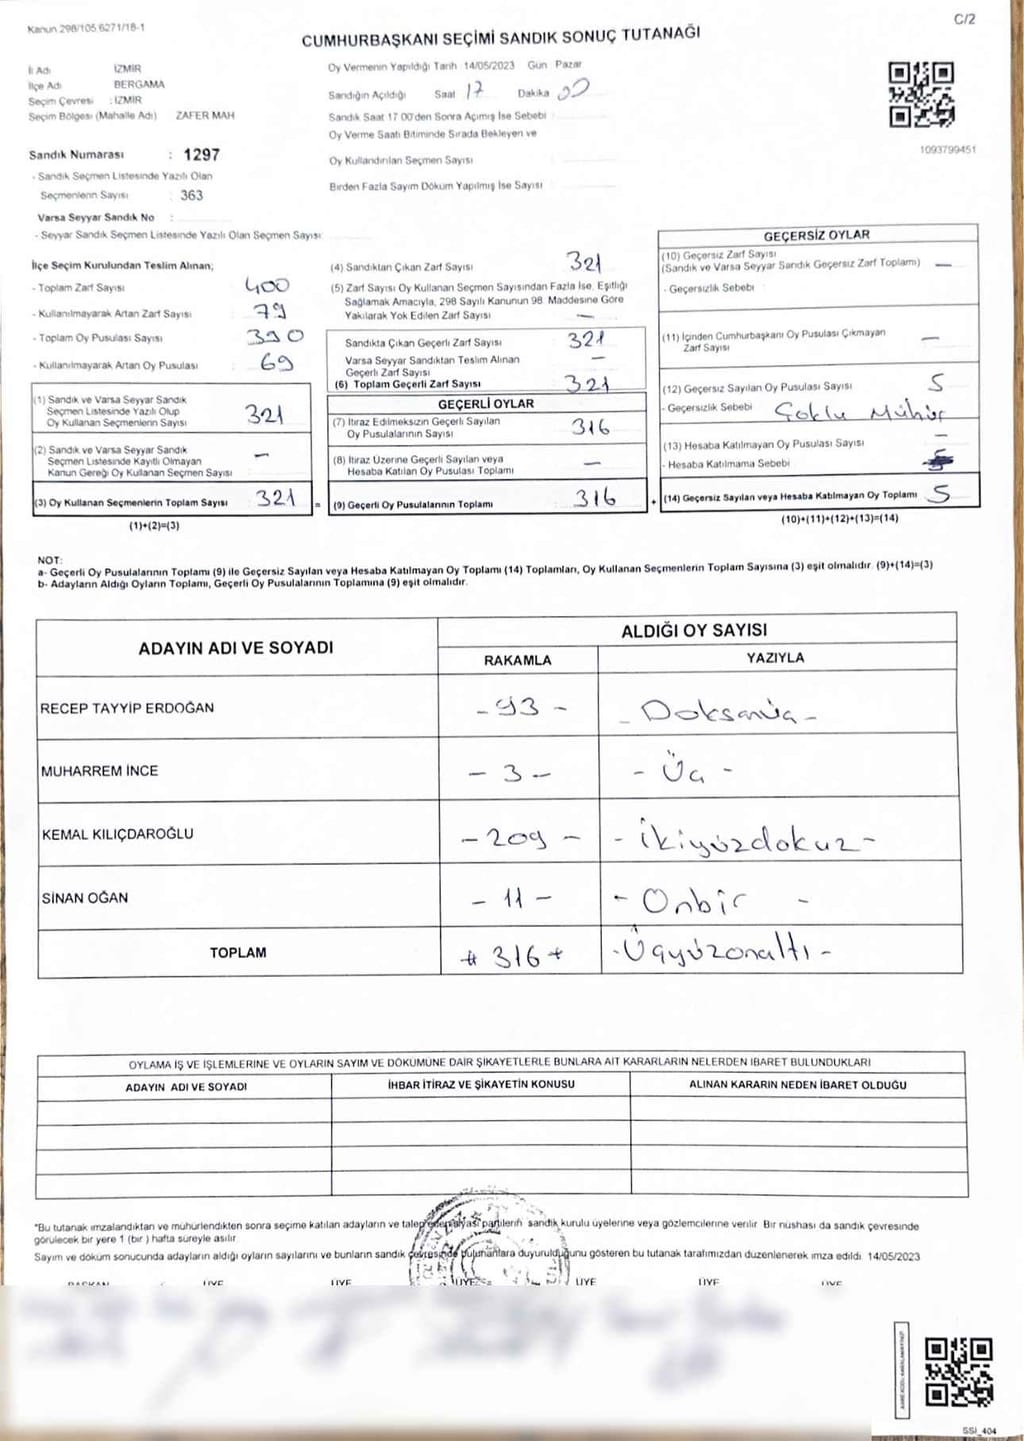 Kanun 298/105.6271/18-1
C/2
CUMHURBAŞKANI SEÇİMİ SANDIK SONUÇ TUTANAĞI
İl Adı İZMİR
İlçe Adı BERGAMA
Seçim Çevresi : İZMİR
Seçim Bölgesi (Mahalle Adı) ZAFER MAH
Sandık Numarası : 1297
- Sandık Seçmen Listesinde Yazılı Olan
Seçmenlerin Sayısı : 363
Varsa Seyyar Sandık No :
- Seyyar Sandık Seçmen Listesinde Yazılı Olan Seçmen Sayısı:
Oy Vermenin Yapıldığı Tarih 14/05/2023 Gün Pazar
Sandığın Açıldığı Saat 17 Dakika 00
Sandık Saat 17 00'den Sonra Açımış İse Sebebi
Oy Verme Saati Bitiminde Sırada Bekleyen ve
Oy Kullandırılan Seçmen Sayısı
Birden Fazla Sayım Döküm Yapılmış İse Sayısı
1093799451
İlçe Seçim Kurulundan Teslim Alınan;
- Toplam Zarf Sayısı 400
- Kullanılmayarak Artan Zarf Sayısı 79
- Toplam Oy Pusulası Sayısı 390
- Kullanılmayarak Artan Oy Pusulası 69
(1) Sandık ve Varsa Seyyar Sandık
Seçmen Listesinde Yazılı Olup
Oy Kullanan Seçmenlerin Sayısı 321
(2) Sandık ve Varsa Seyyar Sandık
Seçmen Listesinde Kayıtlı Olmayan
Kanun Gereği Oy Kullanan Seçmen Sayısı –
(3) Oy Kullanan Seçmenlerin Toplam Sayısı 321 =
(1)+(2)=(3)
(4) Sandıktan Çıkan Zarf Sayısı 321
(5) Zarf Sayısı Oy Kullanan Seçmen Sayısından Fazla İse, Eşitliği
Sağlamak Amacıyla, 298 Sayılı Kanunun 98. Maddesine Göre
Yakılarak Yok Edilen Zarf Sayısı –
Sandıkta Çıkan Geçerli Zarf Sayısı 321
Varsa Seyyar Sandıktan Teslim Alınan
Geçerli Zarf Sayısı –
(6) Toplam Geçerli Zarf Sayısı 321
GEÇERLİ OYLAR
(7) İtiraz Edilmeksizin Geçerli Sayılan
Oy Pusulalarının Sayısı 316
(8) İtiraz Üzerine Geçerli Sayılan veya
Hesaba Katılan Oy Pusulası Toplamı –
(9) Geçerli Oy Pusulalarının Toplamı 316 +
GEÇERSİZ OYLAR
(10) Geçersiz Zarf Sayısı
(Sandık ve Varsa Seyyar Sandık Geçersiz Zarf Toplamı) –
- Geçersizlik Sebebi
(11) İçinden Cumhurbaşkanı Oy Pusulası Çıkmayan
Zarf Sayısı –
(12) Geçersiz Sayılan Oy Pusulası Sayısı 5
- Geçersizlik Sebebi Çoklu Mühür
(13) Hesaba Katılmayan Oy Pusulası Sayısı –
- Hesaba Katılmama Sebebi
(14) Geçersiz Sayılan veya Hesaba Katılmayan Oy Toplamı 5
(10)+(11)+(12)+(13)=(14)
NOT:
a- Geçerli Oy Pusulalarının Toplamı (9) ile Geçersiz Sayılan veya Hesaba Katılmayan Oy Toplamı (14) Toplamları, Oy Kullanan Seçmenlerin Toplam Sayısına (3) eşit olmalıdır. (9)+(14)=(3)
b- Adayların Aldığı Oyların Toplamı, Geçerli Oy Pusulalarının Toplamına (9) eşit olmalıdır.
ADAYIN ADI VE SOYADI ALDIĞI OY SAYISI
RAKAMLA YAZIYLA
RECEP TAYYİP ERDOĞAN -93- -Doksanüç-
MUHARREM İNCE -3- -Üç-
KEMAL KILIÇDAROĞLU -209- -İkiyüzdokuz-
SİNAN OĞAN -11- -Onbir -
TOPLAM #316+ -Üçyüzonaltı-
OYLAMA İŞ VE İŞLEMLERİNE VE OYLARIN SAYIM VE DÖKÜMÜNE DAİR ŞİKAYETLERLE BUNLARA AİT KARARLARIN NELERDEN İBARET BULUNDUKLARI
ADAYIN ADI VE SOYADI İHBAR İTİRAZ VE ŞİKAYETİN KONUSU ALINAN KARARIN NEDEN İBARET OLDUĞU
"Bu tutanak imzalandıktan ve mühürlendikten sonra seçime katılan adayların ve talep eden siyasi partilerin sandık kurulu üyelerine veya gözlemcilerine verilir. Bir nüshası da sandık çevresinde
görülecek bir yere 1 (bir) hafta süreyle asılır
Sayım ve döküm sonucunda adayların aldığı oyların sayılarını ve bunların sandık çevresinde bulunanlara duyurulduğunu gösteren bu tutanak tarafımızdan düzenlenerek imza edildi. 14/05/2023
BAŞKAN ÜYE ÜYE ÜYE ÜYE ÜYE ÜYE
SSI_404